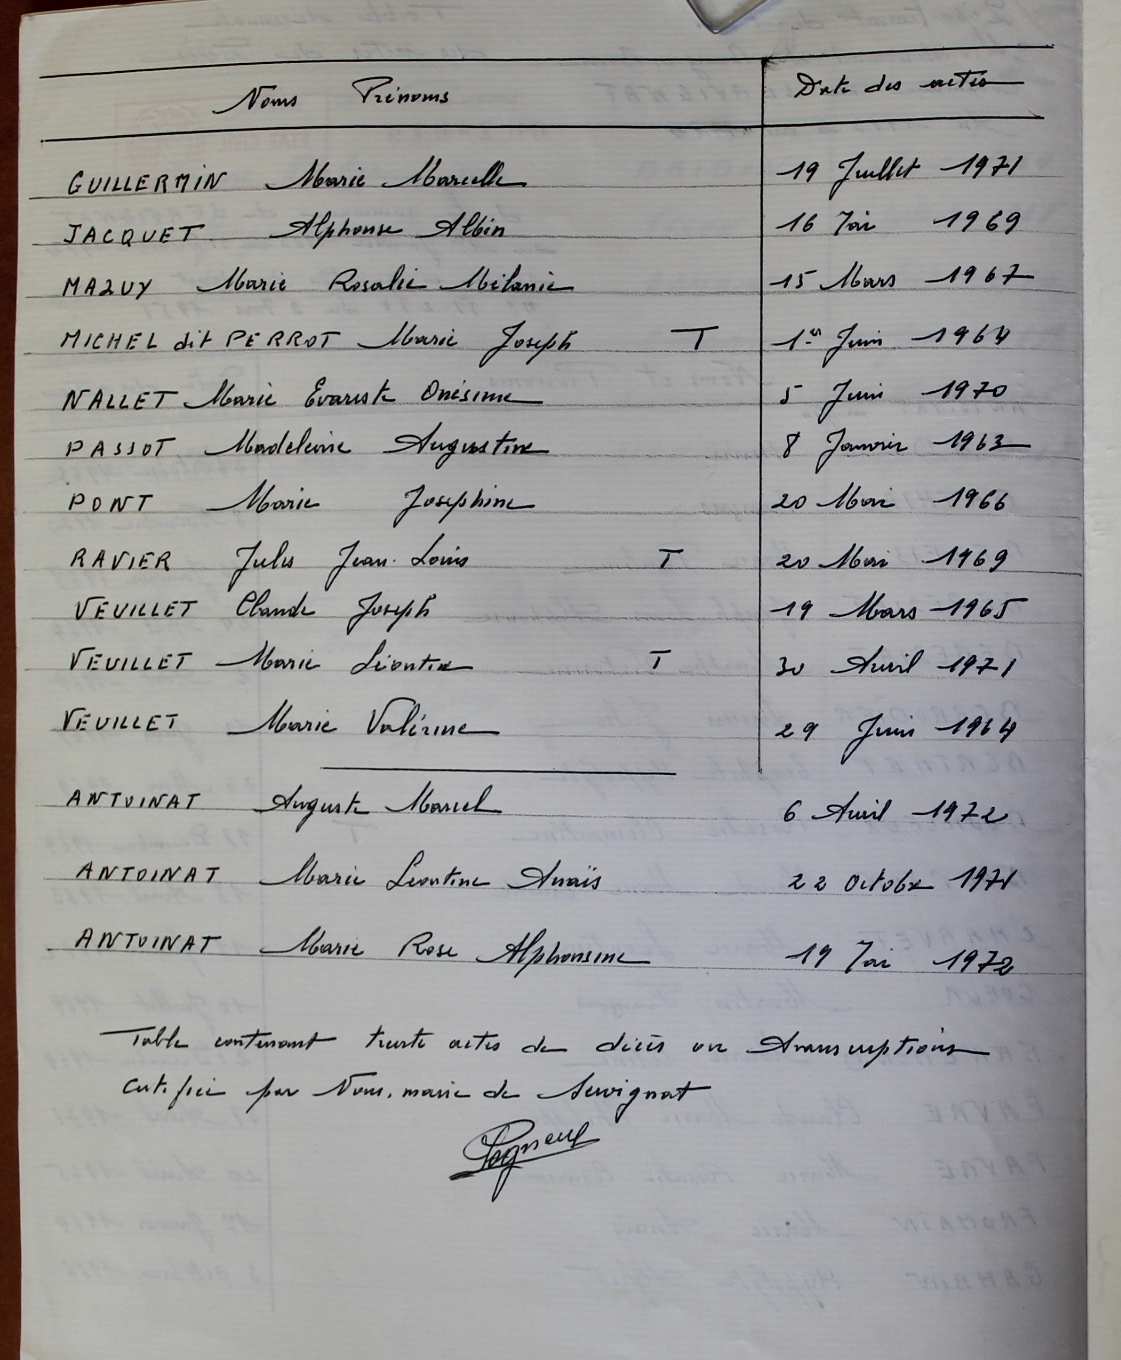 Noms Prénoms Date des actes
GUILLERMIN Marie Marcelle 19 Juillet 1971
JACQUET Alphonse Albin 16 Mai 1969
MAZUY Marie Rosalie Mélanie 15 Mars 1967
MICHEL dit PERROT Marie Joseph T 1er Juin 1964
NALLET Marie Evariste Onésime 5 Juin 1970
PASSOT Madeleine Augustine 8 Janvier 1963
PONT Marie Josephine 20 Mai 1966
RAVIER Jules Jean-Louis T 20 Mai 1969
VEUILLET Claude Joseph 19 Mars 1965
VEUILLET Marie Léontine T 30 Avril 1971
VEUILLET Marie Valérine 29 Juin 1964
ANTOINAT Auguste Marcel 6 Avril 1972
ANTOINAT Marie Léontine Anaïs 22 Octobre 1971
ANTOINAT Marie Rose Alphonsine 19 Mai 1972
Table contenant trente actes de décès ou transcriptions
certifiée par Nous, maire de Servignat